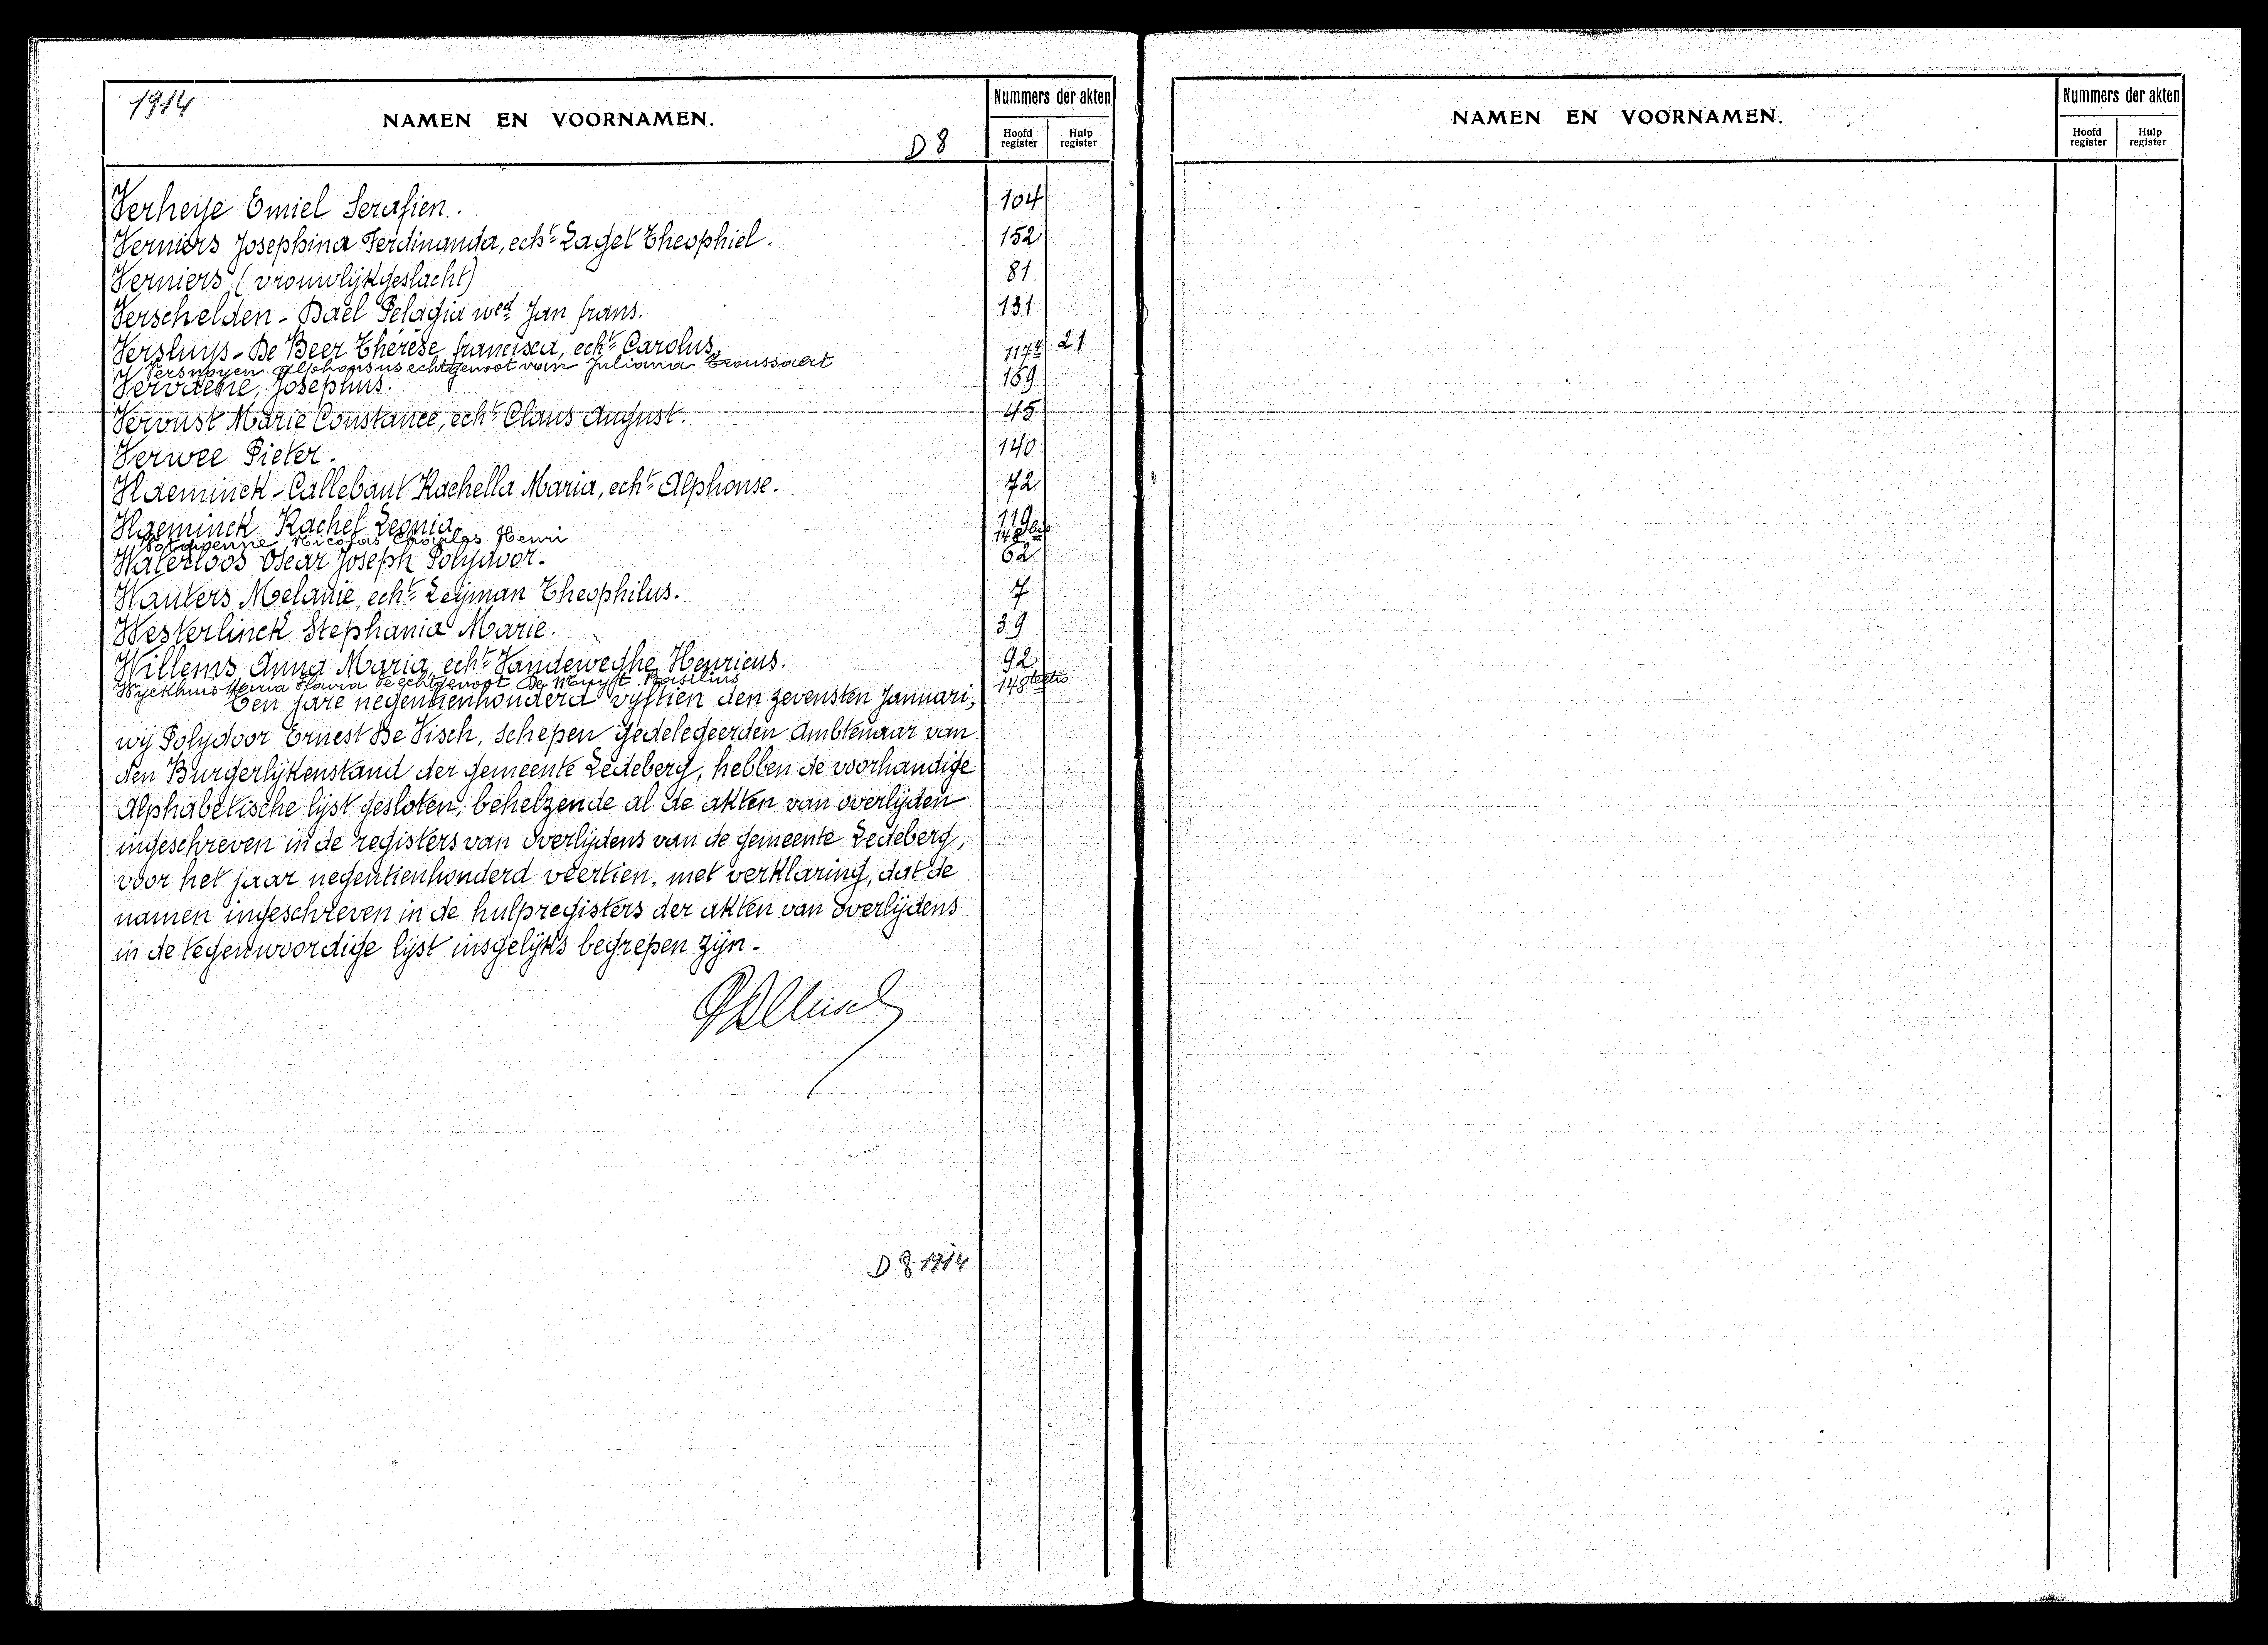 1914
NAMEN EN VOORNAMEN.
D 8
Nummers der akten
Hoofd register
Hulp register
Verheye Emiel Serafien. 104
Verniers Josephina Ferdinanda, echt Laget Theophiel. 152
Verniers (vrouwlijk geslacht) 81
Verschelden - Dael Pelagia wed Jan frans. 131
Versluys - De Beer Thérèse francisca, echt Carolus, 21
Versnoyen Alphonsus echtgenoot van Juliana Troussaert 117
Vervaene, Josephus. 169
Vervust Marie Constance, echt Claus August. 45
Verwee Pieter. 140
Vlaeminck - Callebaut Rachella Maria, echt Alphonse. 72
Vlaeminck Rachel Leonia. 119
Nicolas Charles Henri 148 bis
Waterloos Oscar Joseph Polydoor. 62
Wauters Melanie, echt Leyman Theophilus. 7
Westerlinck Stephania Marie. 39
Willems Anna Maria, echt Vandeweghe Henricus. 92
Wyckhuis Maria Flavia echtgenoot De Muyst Basilius 148 tertio
Ten jare negentienhonderd vyftien den zevensten Januari,
wij Polydoor Ernest De Visch, schepen gedelegeerden Ambtenaar van
den Burgerlijkenstand der gemeente Ledeberg, hebben de voorhandige
Alphabetische lijst gesloten, behelzende al de akten van overlijden
ingeschreven in de registers van overlijdens van de gemeente Ledeberg,
voor het jaar negentienhonderd veertien, met verklaring, dat de
namen ingeschreven in de hulpregisters der akten van overlijdens
in de tegenwoordige lijst insgelijks begrepen zijn.
D 8 1914
NAMEN EN VOORNAMEN.
Nummers der akten
Hoofd register
Hulp register